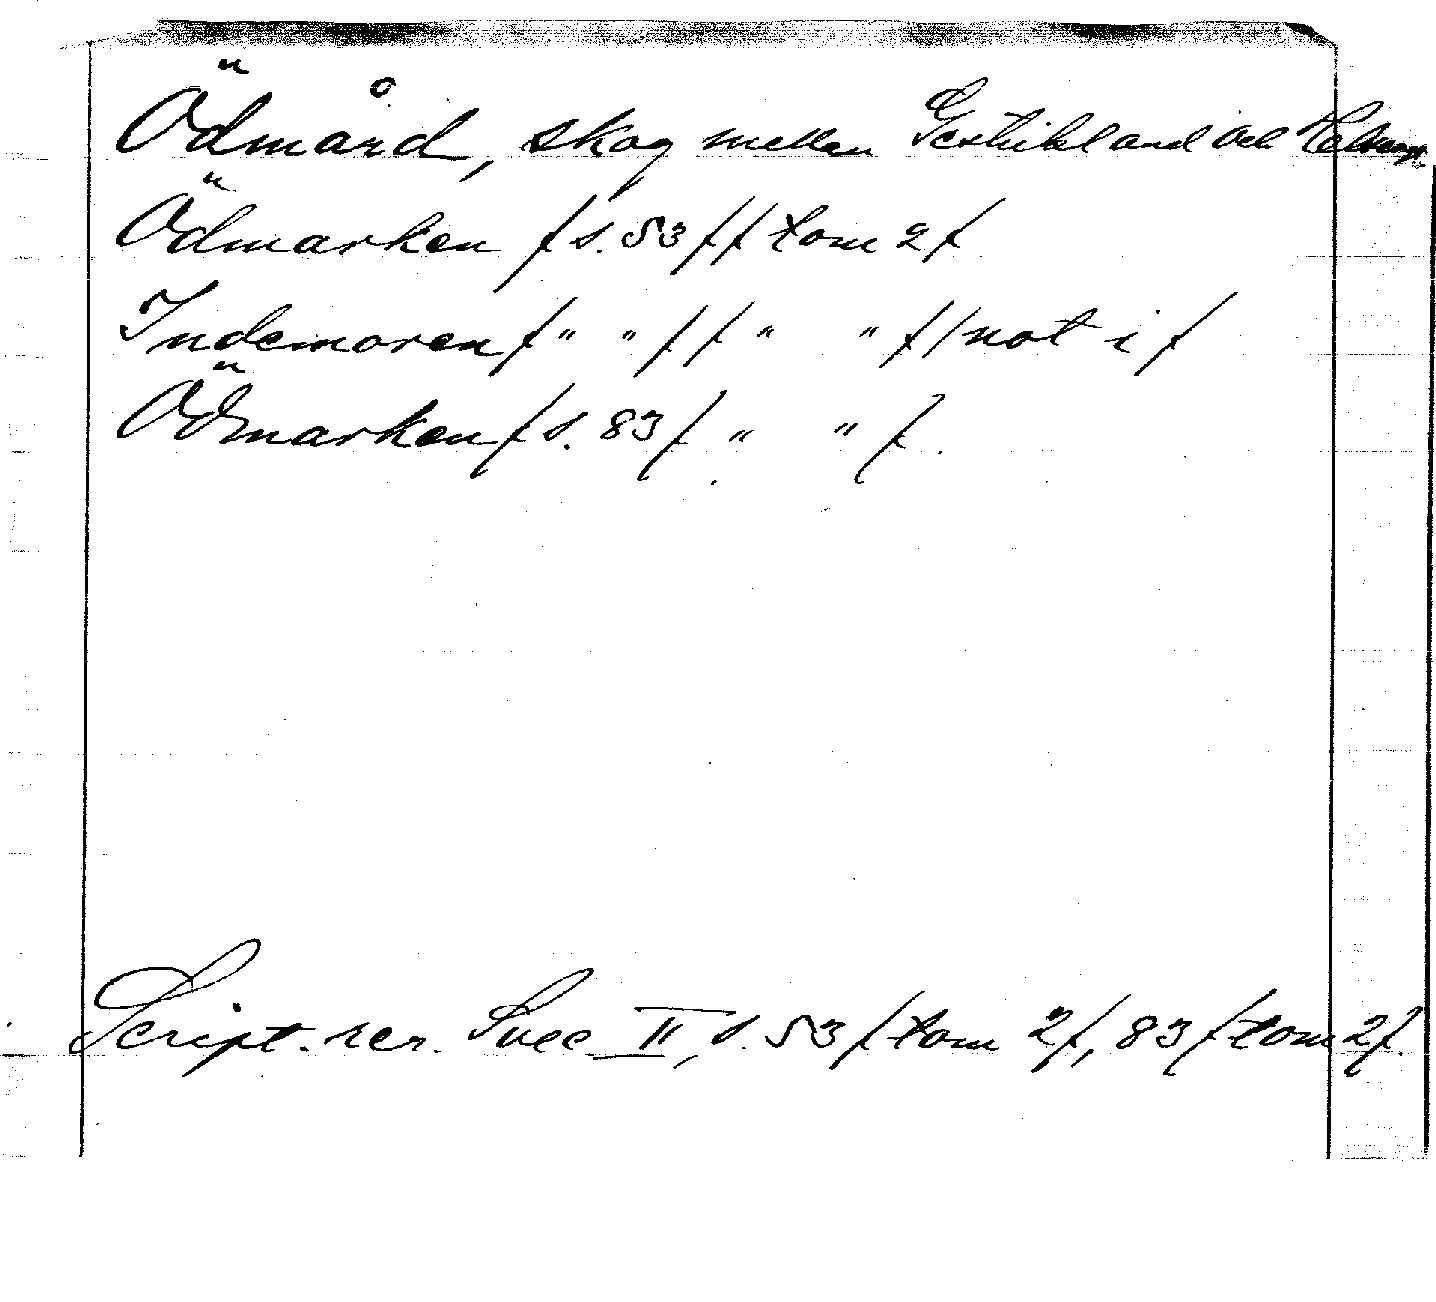 Ödmård, skog mellan Gestrikland och Helsing.
Ödmarken /s. 53// /tom 2/
Indemoren /" "/ /" "/ /not i/
Ödmarken /s. 83/ " "/.
Script. rer. Svec II, s. 53 /tom 2/, 83 /tom 2/.